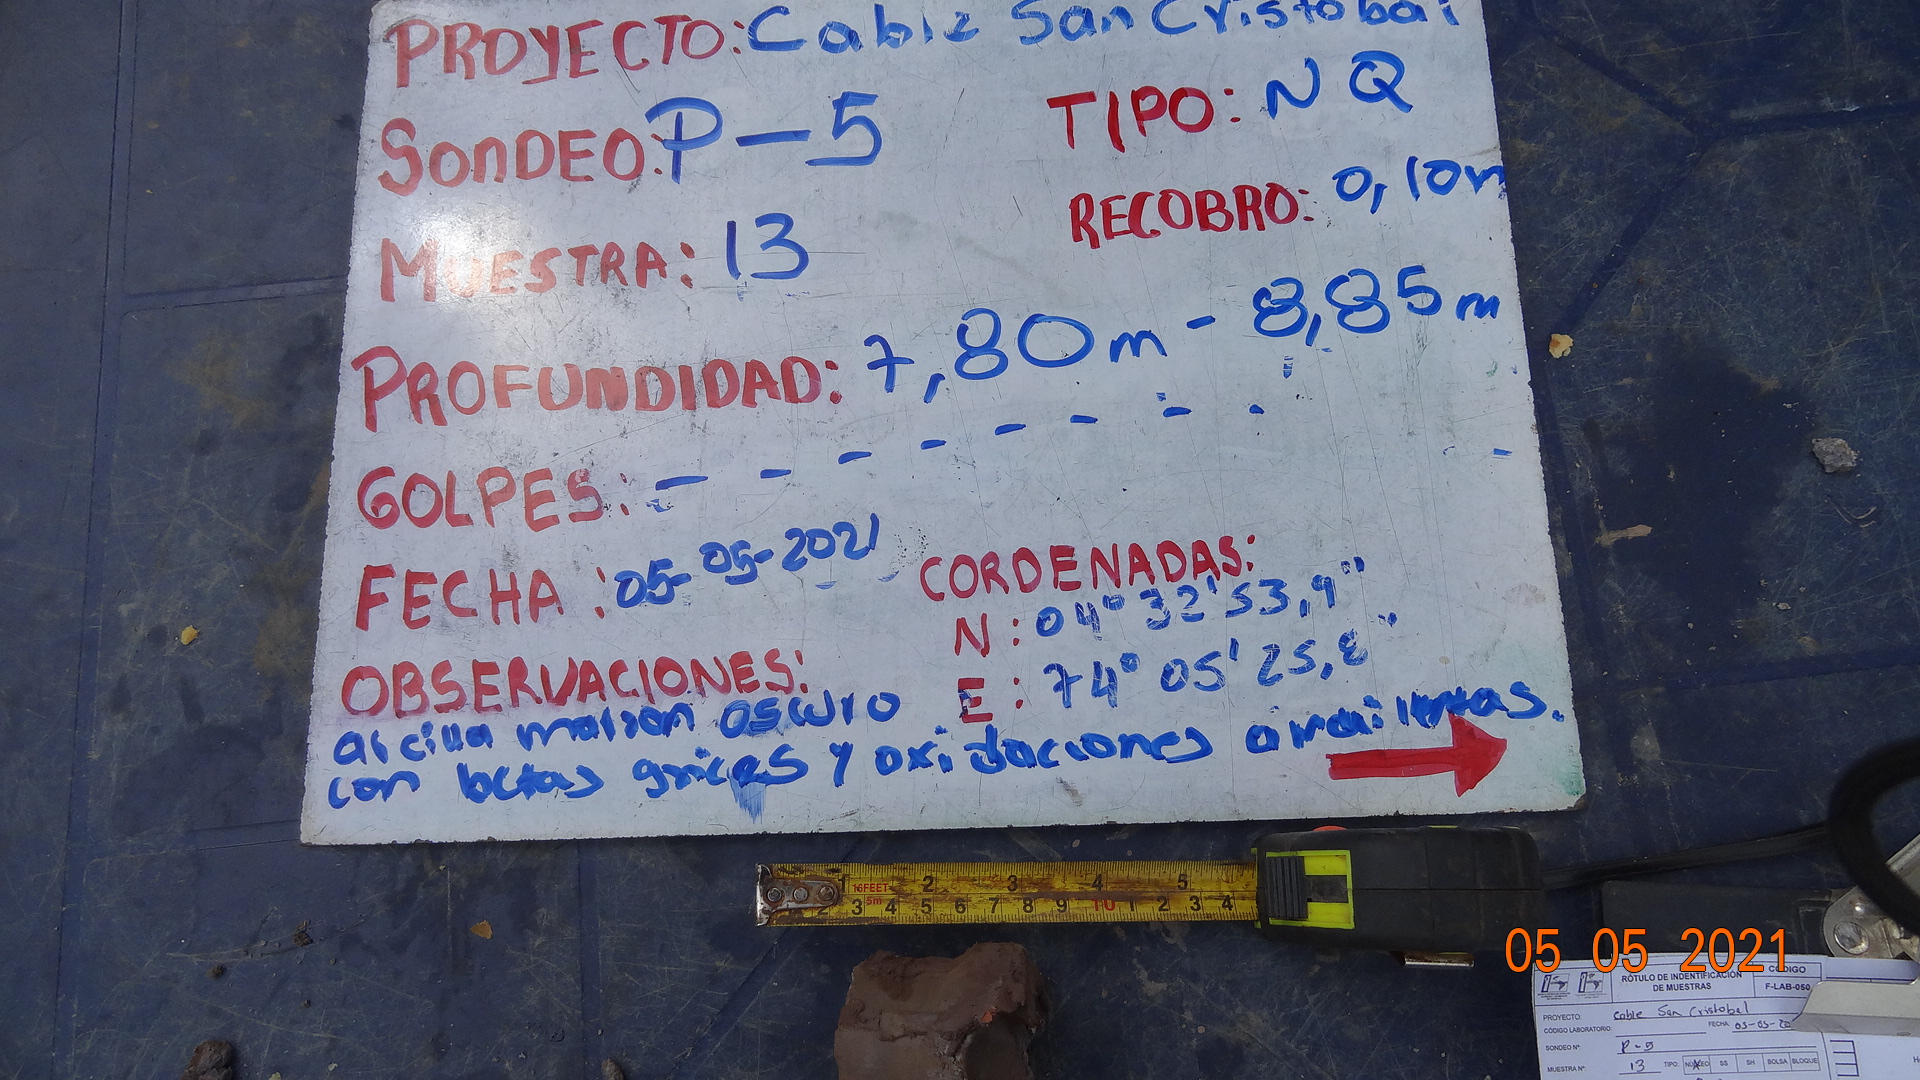 PROYECTO: Cable San Cristobal
SONDEO: P-5 TIPO: NQ
MUESTRA: 13 RECOBRO: 0,10m
PROFUNDIDAD: 7,80m - 8,85m
GOLPES: - - - - - - - -
FECHA: 05-05-2021
CORDENADAS:
N: 04° 32' 53,9"
E: 74° 05' 25,8"
OBSERVACIONES:
arcilla marron oscuro
con betas grices y oxidaciones amarillentas.
1 16FEET 2 3 4 5
2 3 5m 4 5 6 7 8 9 10 1 2 3 4
05 05 2021
RÓTULO DE INDENTIFICACIÓN
DE MUESTRAS
CÓDIGO
F-LAB-050
PROYECTO: Cable San Cristobal
CÓDIGO LABORATORIO: FECHA: 05-05-20
SONDEO Nº: P-5
MUESTRA Nº: 13 TIPO: NÚCLEO SS SH BOLSA BLOQUE